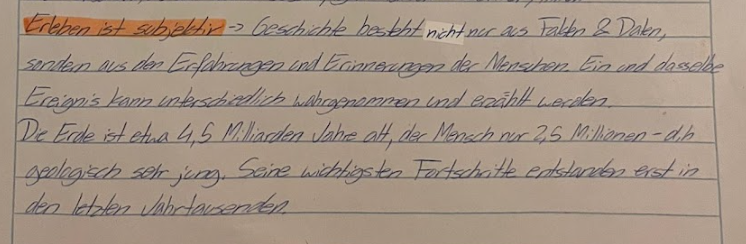 Erleben ist subjektiv -> Geschichte besteht nicht nur aus Fakten & Daten,
sondern aus den Erfahrungen und Erinnerungen der Menschen. Ein und dasselbe
Ereignis kann unterschiedlich wahrgenommen und erzählt werden.
Die Erde ist etwa 4,5 Milliarden Jahre alt, der Mensch nur 2,5 Millionen - d.h
geologisch sehr jung. Seine wichtigsten Fortschritte entstanden erst in
den letzten Jahrtausenden.